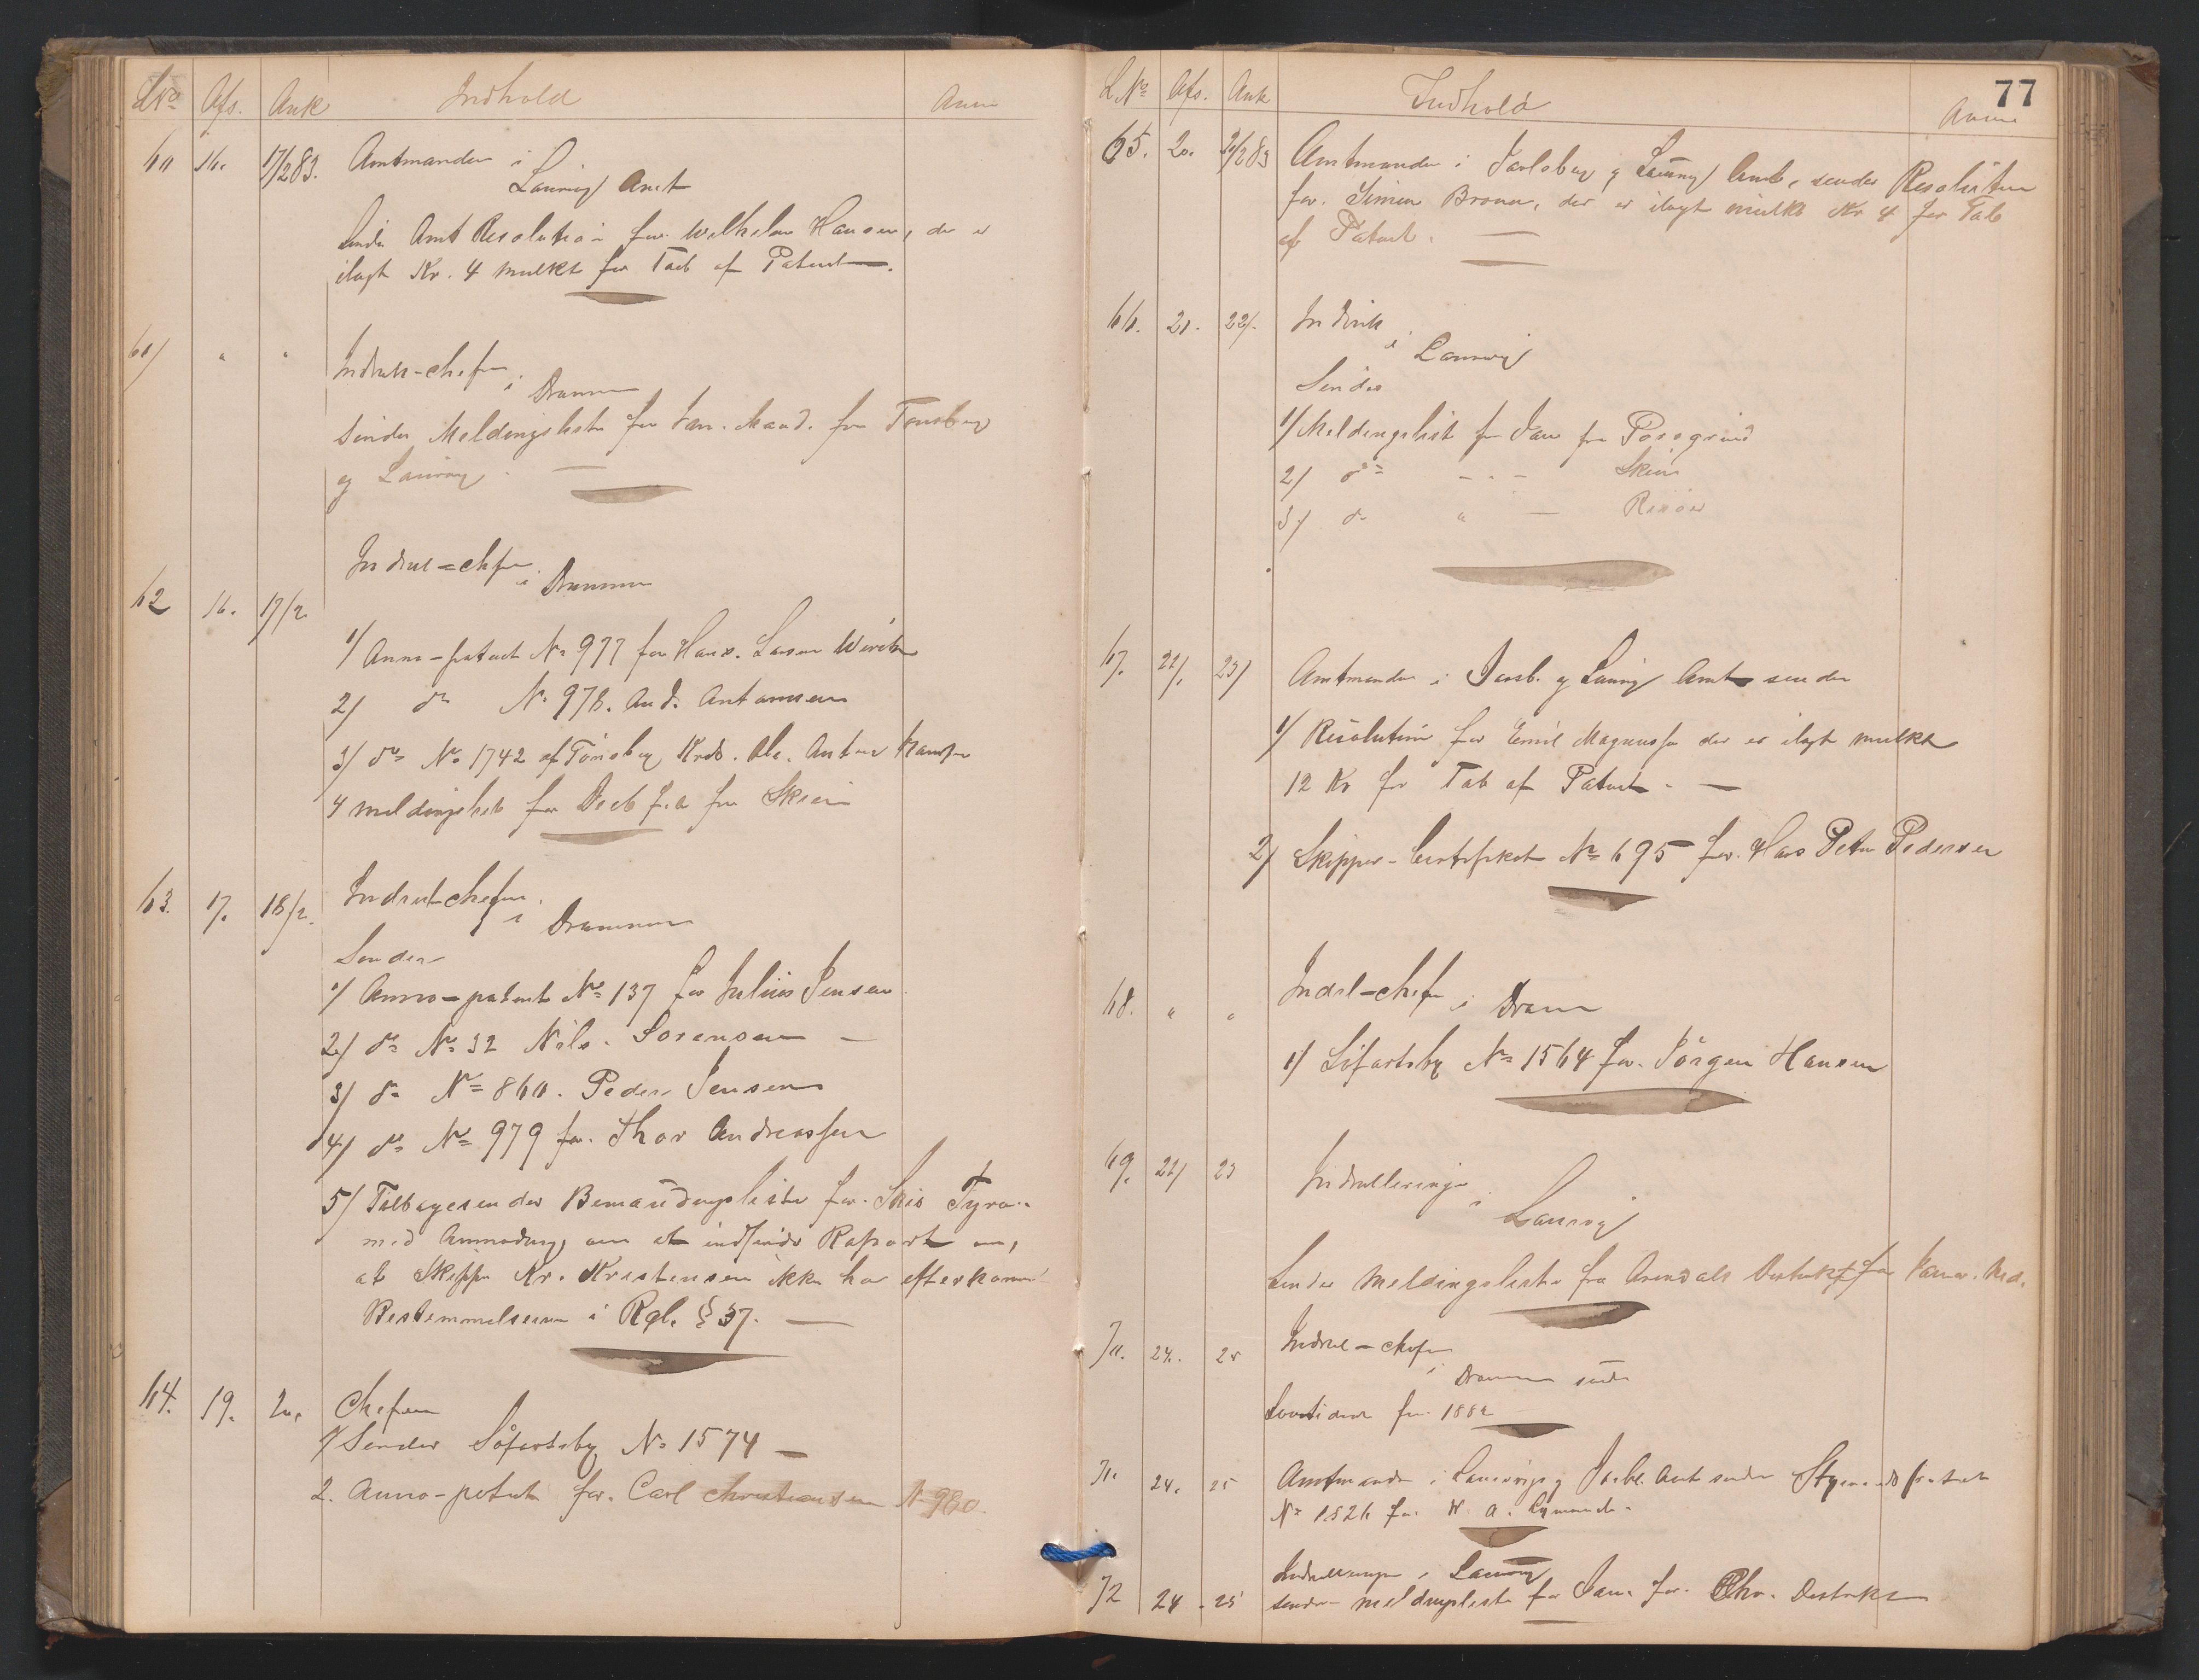 LNo Afs. Ank Indhold Anm
60 16. 17/2 83. Amtmanden i
Laurvig Amt
Sender Amt Resolution for Wilhelm Hansen, der er
ilagt Kr. 4 mulkt for Tab af Patent —.
61/ " " Indrul-chefen
i Drammen
Sender Meldingsliste for Jan. Maad. fra Tønsberg
og Laurvig. —
Indrul=chefen
i Drammen
62 16. 17/2
1/ Anno-patent No 977 for Hans. Larsen
2/ do No 978. And. Antonsen
3/ do No 1742 af Tönsberg Krds. Ole. Anton Hansen
4 meldingsliste for Decb fra Skien
63. 17. 18/2. Indrul-chefen
i Drammen
Sender
1/ Anno-patent No 137 for Julius Jensen
2/ do No 32 Nils. Sorensen —
3/ do No 860. Peder Jensen
4/ do No 979 for. Thor Andreassen
5/ Tilbagesender Bemandingsliste for. Skib Tyra..
med Anmodning om at indsende Raport om,
at Skipper Kr. Kristensen ikke har efterkommet
Bestemmelserne i Rgl. § 37. —
64. 19. 20. Chefen
1/ Sender Söfartsbg No 1574 —
2. Anno-patent for. Carl Christiansen No 980.
77
L.No Afs. Ank Indhold Anm
65. 20. 21/2 83 Amtmanden i Jarlsberg og Laurvig Amt, sender Resolution
for. Simen Broun, der er ilagt mulkt Kr 4 for Tab
af Patent. —
66. 21. 22/. Indrul
i Laurvig
Sender
1/ Meldingslist for Jan fra Porsgrund
2/ do - . - Skien
3/ do " — Risöer
67. 22/. 23/ Amtmanden i Jarlb. og Laurvig Amt sender
1/ Resolution for Emil Magnussen der er ilagt mulkt
12 Kr for Tab af Patent. —
2/ Skipper-Certifikat No 695 for. Hans Peter Pedersen
68. " " Indrl-chefen i Dram
1/ Söfartsbg No 1564 for. Jörgen Hansen
69. 22/ 23 Indrulleringen
i Laurvig
Sender Meldingsliste fra Arendals Distrikt for Januar. Md.
70. 24. 25 Indrul-chefen
i Drammen sender
Lovtidende for. 1882
71. 24. 25 Amtmanden i Laurvigs og Jarlb. Amt sender Styrmandspatent
No 1526 for.
72 24 - 25 Indrulleringen i Laurvig
sender meldingsliste for Jan. for. Chr. Distrikt